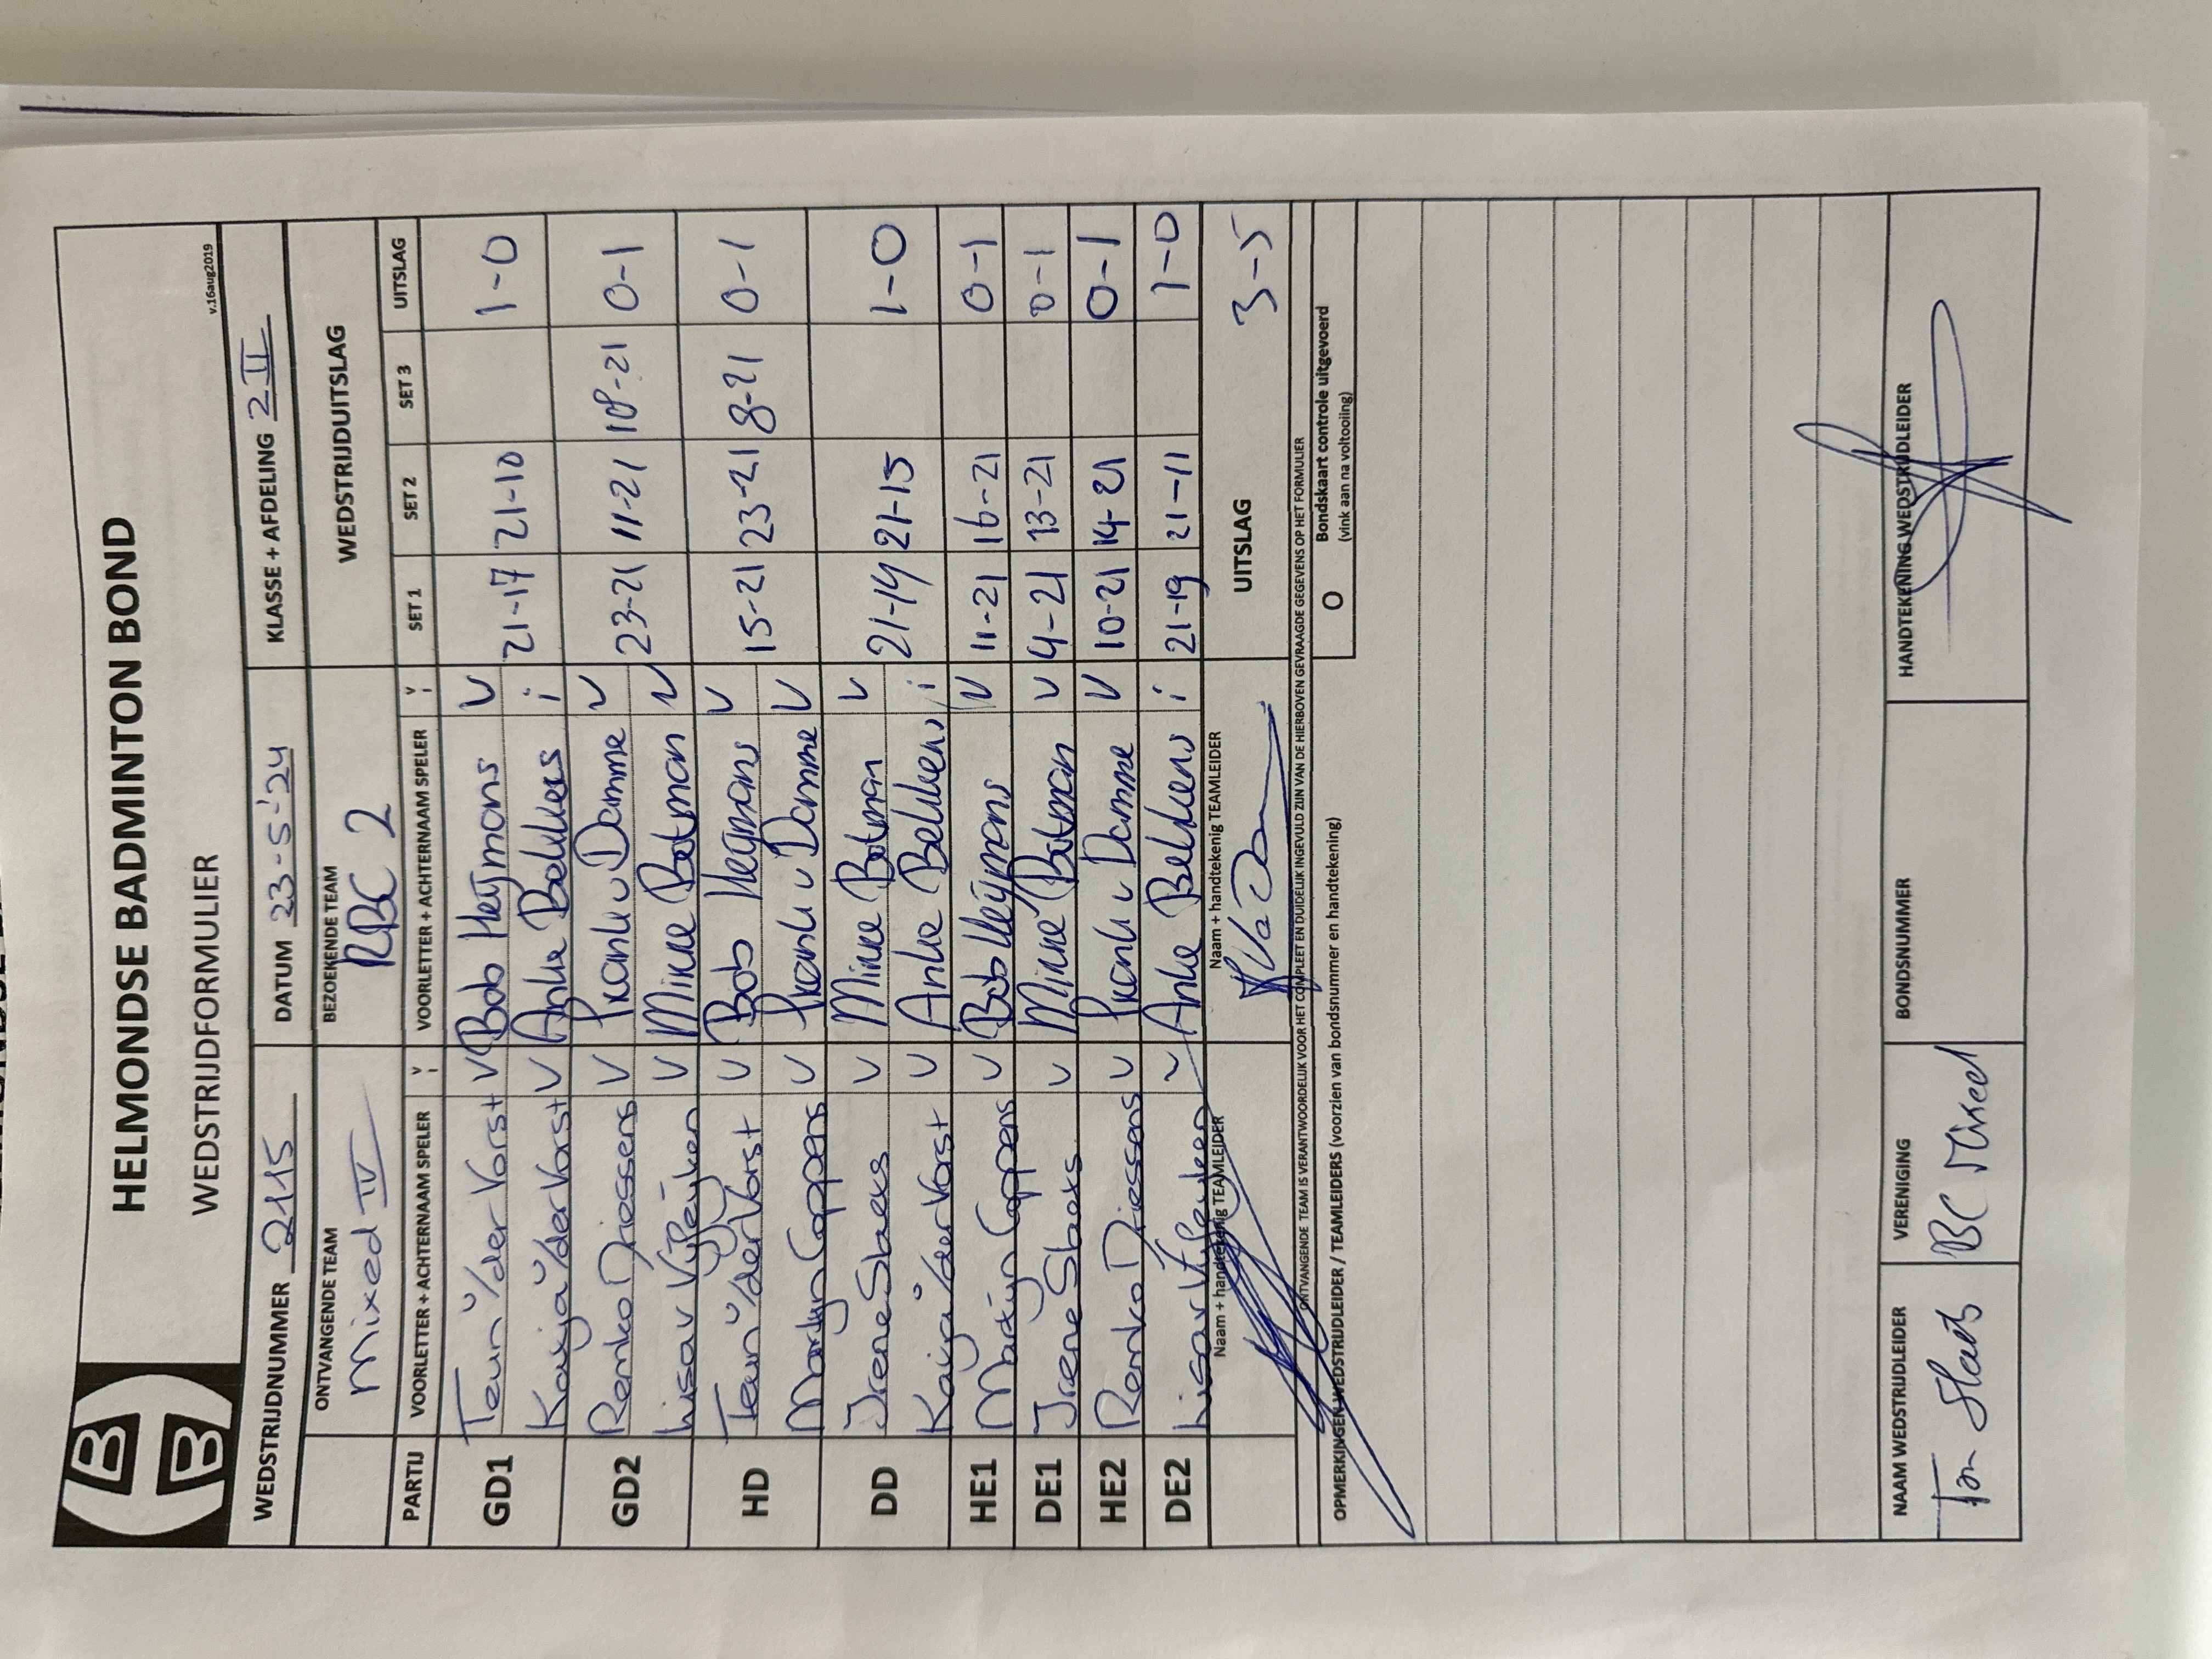 HELMONDSE BADMINTON BOND
WEDSTRIJDFORMULIER
v.16aug2019
WEDSTRIJDNUMMER 2115 DATUM 23-5-'24 KLASSE + AFDELING 2 II
ONTVANGENDE TEAM BEZOEKENDE TEAM WEDSTRIJDUITSLAG
Mixed IV RBC 2
PARTIJ VOORLETTER + ACHTERNAAM SPELER V/I VOORLETTER + ACHTERNAAM SPELER V/I SET 1 SET 2 SET 3 UITSLAG
GD1 Teun v/der Vorst V Bob Heijmans V 21-17 21-10 1-0
Kayja v/der Vorst V Anke Bekkers i
GD2 Remko Driessens V Frank v Damme V 23-21 11-21 18-21 0-1
Lisa v Vijfeijken V Minke Botman V
HD Teun v/der Vorst V Bob Heijmans V 15-21 23-21 8-21 0-1
Martijn Coppens V Frank v Damme V
DD Irene Slaets V Minke Botman V 21-14 21-15 1-0
Kayja v/der Vorst V Anke Bekkers i
HE1 Martijn Coppens V Bob Heijmans V 11-21 16-21 0-1
DE1 Irene Slaets V Minke Botman V 4-21 13-21 0-1
HE2 Remko Driessens V Frank v Damme V 10-21 14-21 0-1
DE2 Lisa v Vijfeijken V Anke Bekkers i 21-19 21-11 1-0
Naam + handtekenig TEAMLEIDER Naam + handtekenig TEAMLEIDER UITSLAG 3-5
ONTVANGENDE TEAM IS VERANTWOORDELIJK VOOR HET COMPLEET EN DUIDELIJK INGEVULD ZIJN VAN DE HIERBOVEN GEVRAAGDE GEGEVENS OP HET FORMULIER
OPMERKINGEN WEDSTRIJDLEIDER / TEAMLEIDERS (voorzien van bondsnummer en handtekening) O Bondskaart controle uitgevoerd
(vink aan na voltooiing)
NAAM WEDSTRIJDLEIDER VERENIGING BONDSNUMMER HANDTEKENING WEDSTRIJDLEIDER
Ton Slaets BC Mixed